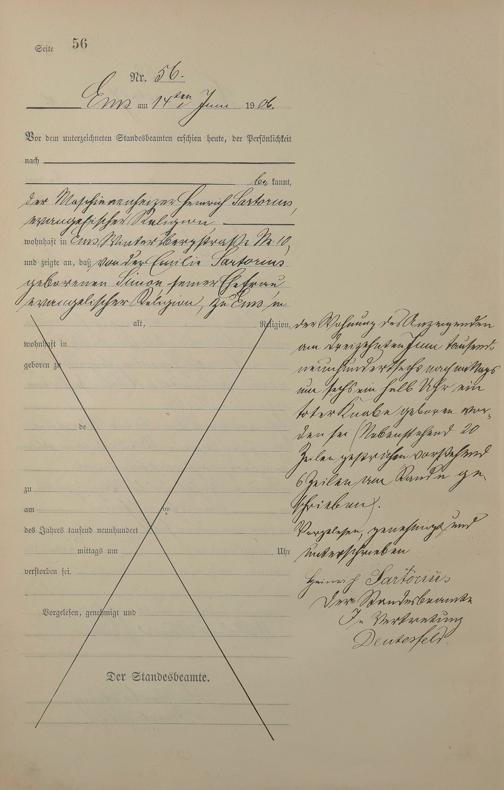 Seite 56
Nr. 56.
Ems am 14ten Juni 1906.
Vor dem unterzeichneten Standesbeamten erschien heute, der Persönlichkeit
nach
be kannt,
der Maschinenheizer Heinrich Sartorius,
evangelischer Religion
wohnhaft in Ems Winterbergstraße Nr 10,
und zeigte an, daß von der Emilie Sartorius
geborenen Simon seiner Ehefrau
evangelischer Religion, zu Ems in
alt, Religion,
wohnhaft in
geboren zu
de
zu
am
des Jahres tausend neunhundert
mittags um Uhr
verstorben sei.
Vorgelesen, genehmigt und
Der Standesbeamte.
der Wohnung des Anzeigenden
am dreizehnten Juni tausend
neunhundertsechs nachmittags
um sechs ein halb Uhr, ein
toter Knabe geboren wor-
den sei (Nebenstehend 20
Zeilen gestrichen vorstehend
6 Zeilen am Rande ge-
schrieben).
Vorgelesen, genehmigt und
unterschrieben
Heinrich Sartorius
Der Standesbeamte
In Vertretung